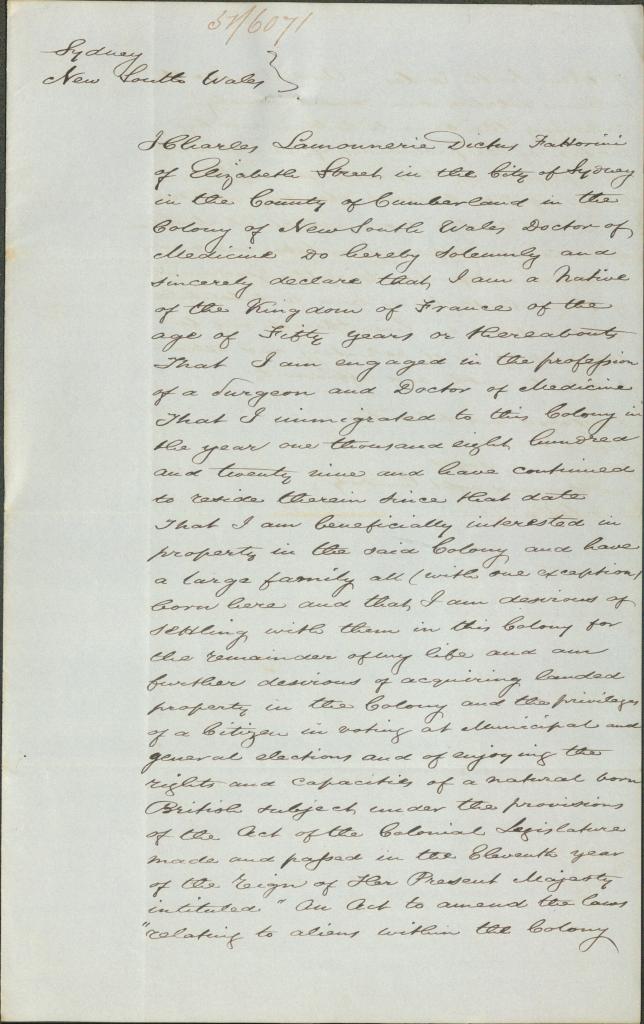 57/6071
Sydney
New South Wales }
I Charles Lamonnerie Dictus Fattorini
of Elizabeth Street in the City of Sydney
in the County of Cumberland in the
Colony of New South Wales Doctor of
Medicine Do hereby solemnly and
sincerely declare that I am a Native
of the Kingdom of France of the
age of Fifty years or thereabouts
That I am engaged in the profession
of a Surgeon and Doctor of Medicine
That I immigrated to this Colony in
the year one thousand eight hundred
and twenty nine and have continued
to reside therein since that date
That I am beneficially interested in
property in the said Colony and have
a large family all (with one exception)
born here and that I am desirous of
settling with them in this Colony for
the remainder of my life and am
further desirous of acquiring landed
property in the Colony and the privileges
of a Citizen in voting at Municipal and
general elections and of enjoying the
rights and capacities of a natural born
British subject under the provisions
of the Act of the Colonial Legislature
made and passed in the Eleventh year
of the reign of Her Present Majesty
intituled "An Act to amend the laws
"relating to aliens within the Colony